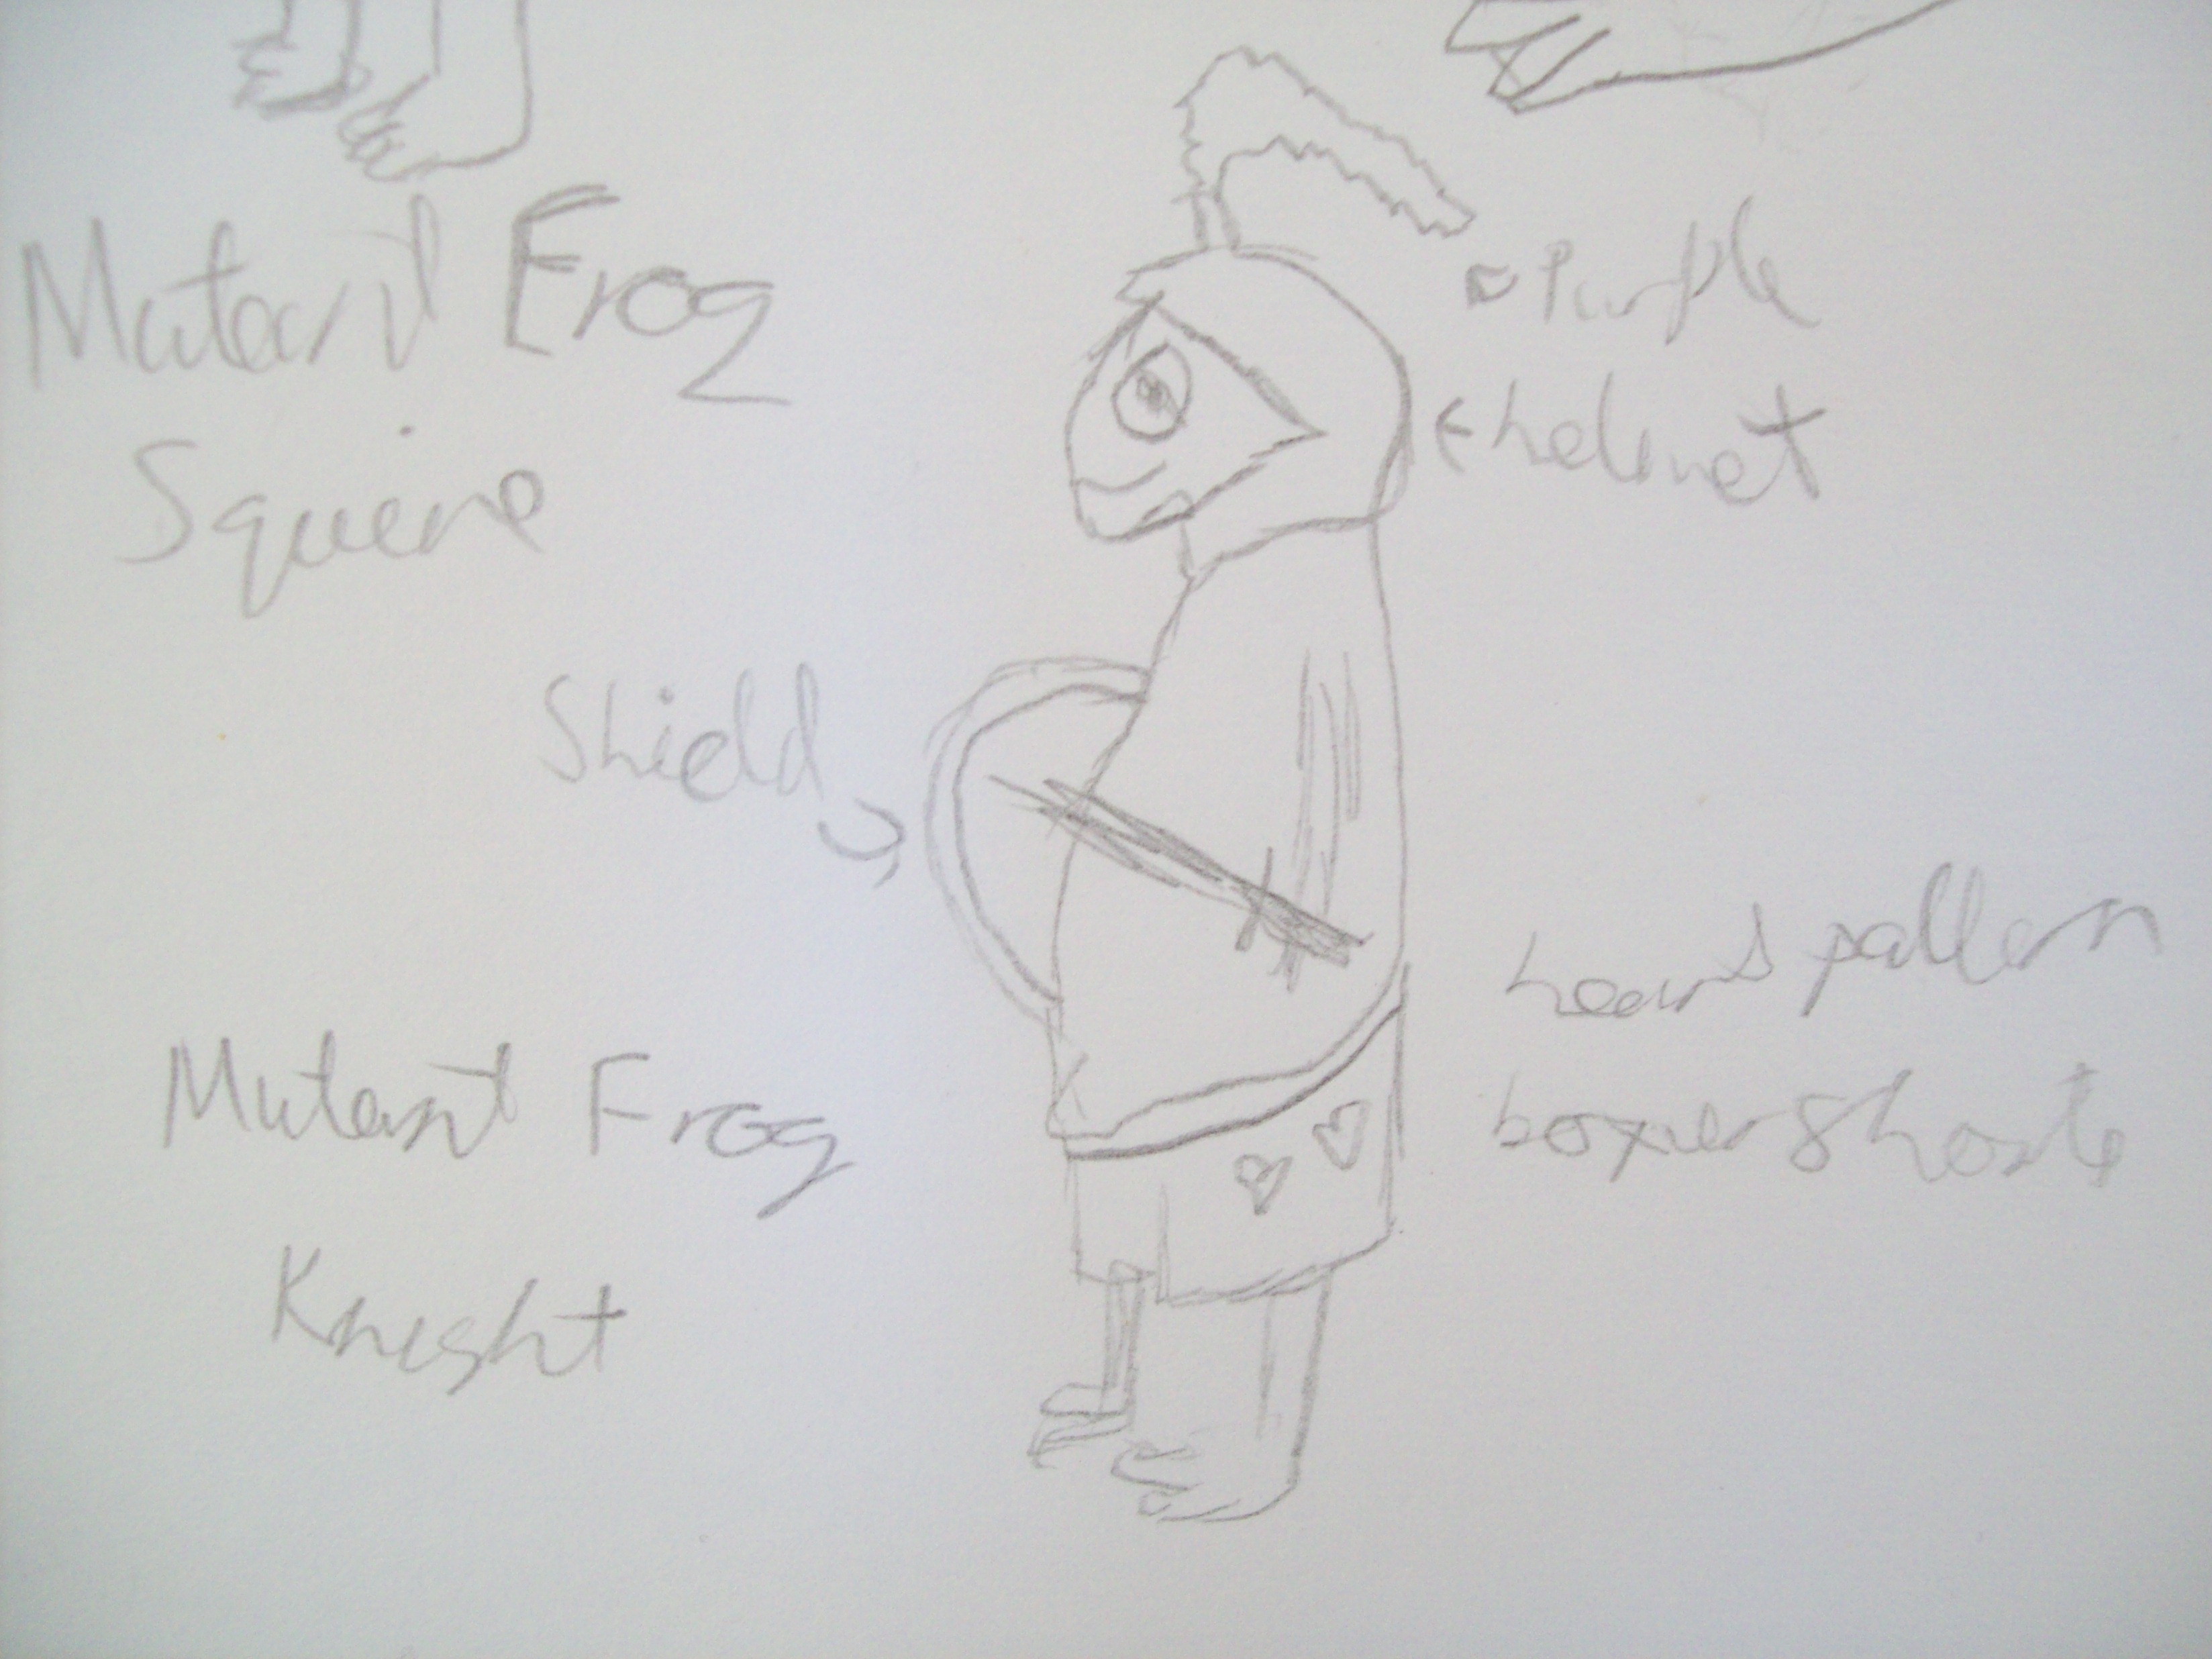 Mutant Frog
Squire
Purple
helmet
Shield
heart pattern
boxer shorts
Mutant Frog
Knight